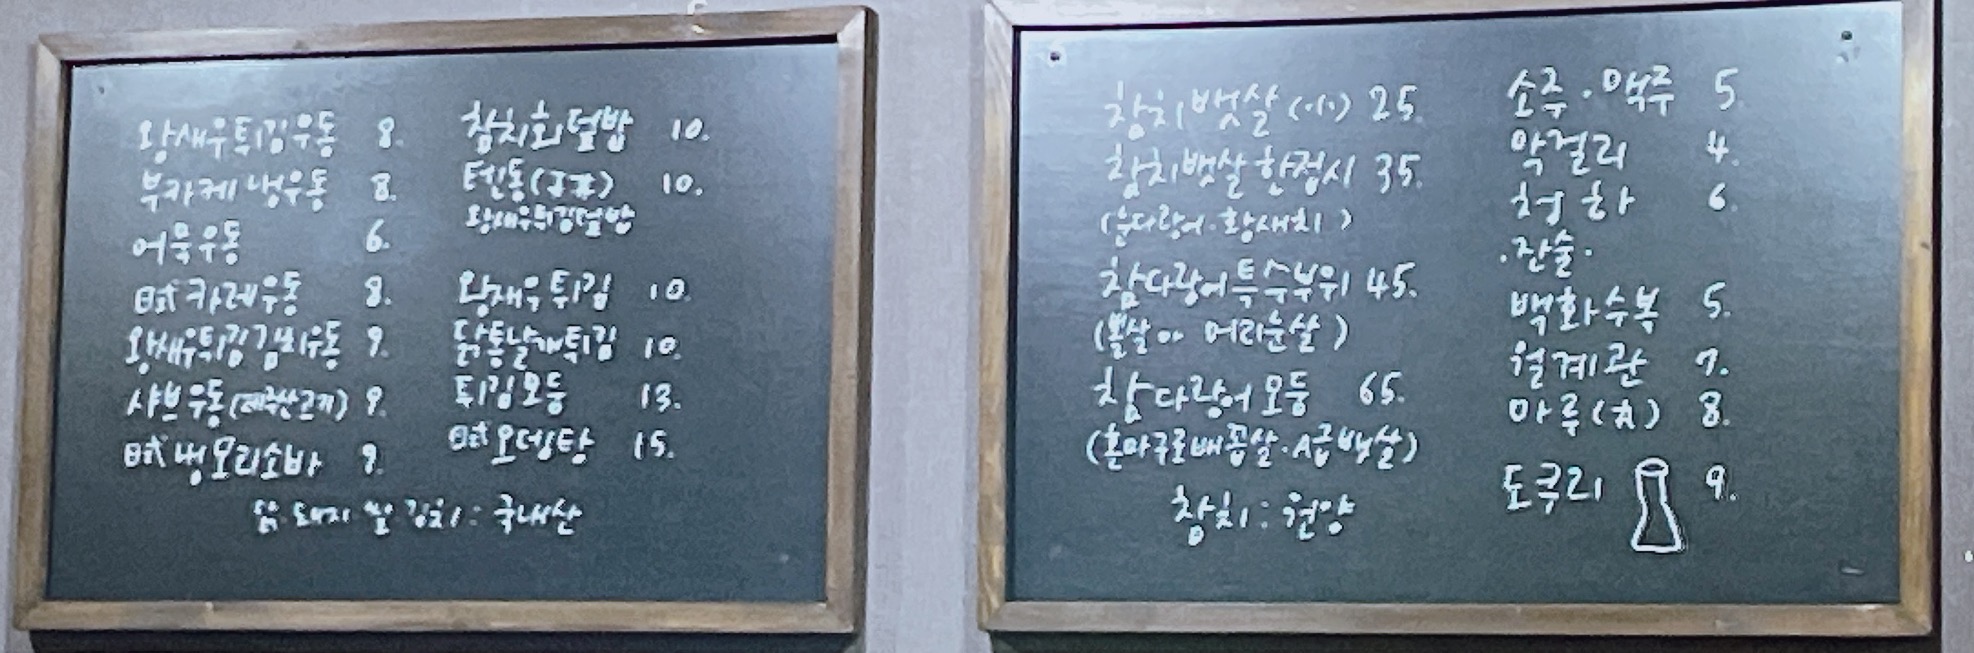 왕새우튀김우동 8.
부카케냉우동 8.
어묵우동 6.
日式 카레우동 8.
왕새우튀김김치우동 9.
샤브우동(제주산고기) 9.
日式 냉모리소바 9.
참치회덮밥 10.
텐동(天丼) 10.
왕새우튀김덮밥
왕새우튀김 10.
닭통날개튀김 10.
튀김모둠 13.
日式 오뎅탕 15.
닭. 돼지. 쌀. 김치: 국내산
참치뱃살(小) 25.
참치뱃살한접시 35.
(눈다랑어·황새치)
참다랑어특수부위 45.
(볼살 머리윗살)
참다랑어모둠 65.
(혼마구로배꼽살·A급뱃살)
참치: 원양
소주·맥주 5.
막걸리 4.
청하 6.
·잔술·
백화수복 5.
월계관 7.
마루(丸) 8.
도쿠리 9.